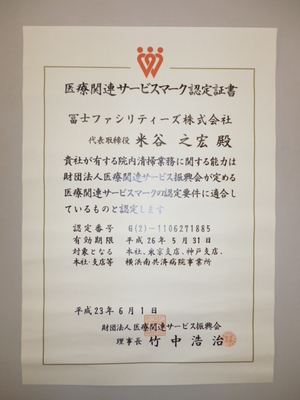 医療関連サービスマーク認定証書
冨士ファシリティーズ株式会社
代表取締役 米谷 之宏 殿
貴社が有する院内清掃業務に関する能力は
財団法人医療関連サービス振興会が定める
医療関連サービスマークの認定要件に適合し
ているものと認定します
認定番号 G(2)-1106271885
有効期限 平成26年5月31日
対象となる 本社、東京支店、神戸支店、
本社・支店等 横浜南共済病院事業所
平成23年6月1日
財団法人医療関連サービス振興会
理事長 竹中浩治